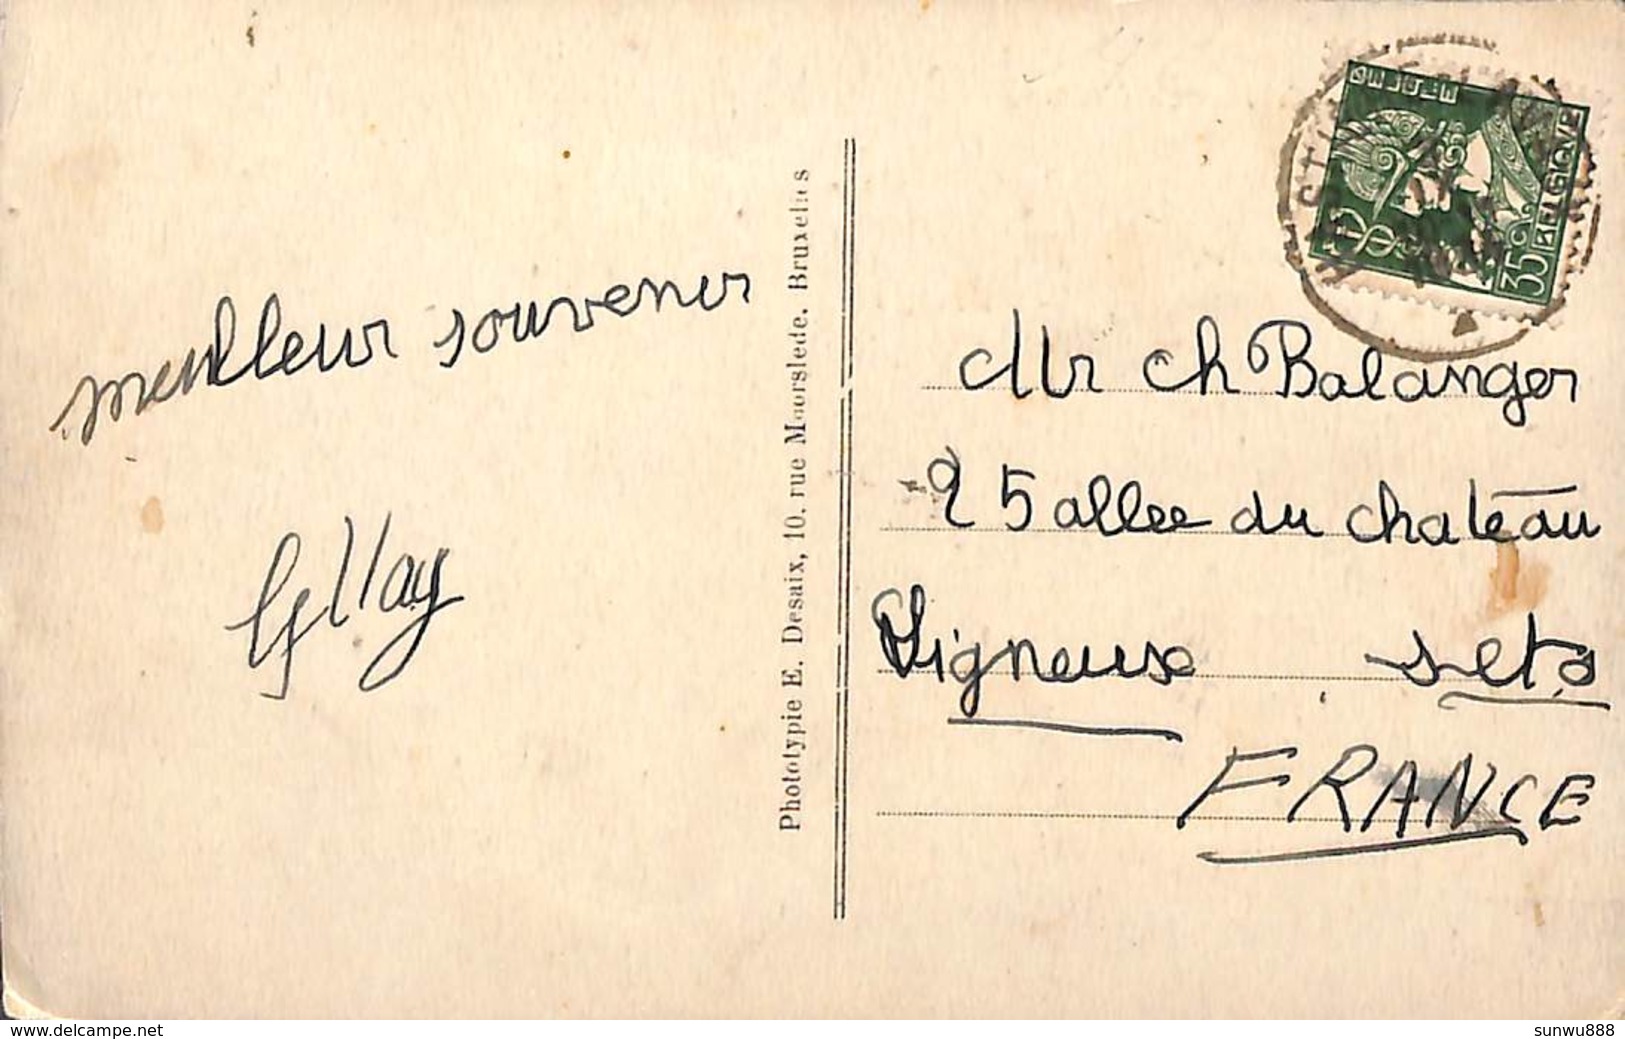 meilleur souvenir
Mr Ch Balanger
25 allee du chateau
Vigneux s et o
FRANCE
Phototypie E. Desaix, 10. rue Moorslede. Bruxelles
BELGIE
35c
BELGIQUE
www.delcampe.net
sunwu888